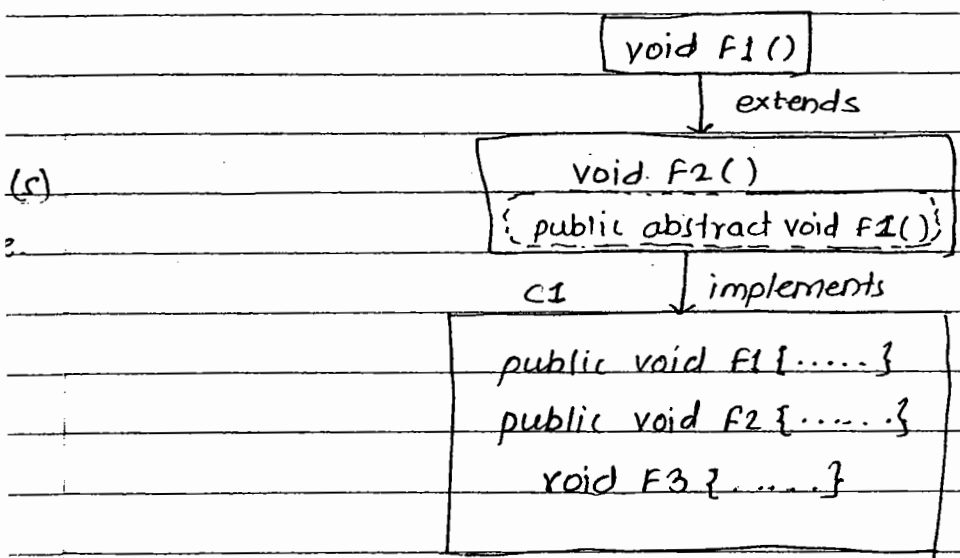 void F1 ()
extends
(s)
void F2 ( )
{ public abstract void F1() }
C1 implements
public void F1 {.....}
public void F2 {......}
void F3 {.....}